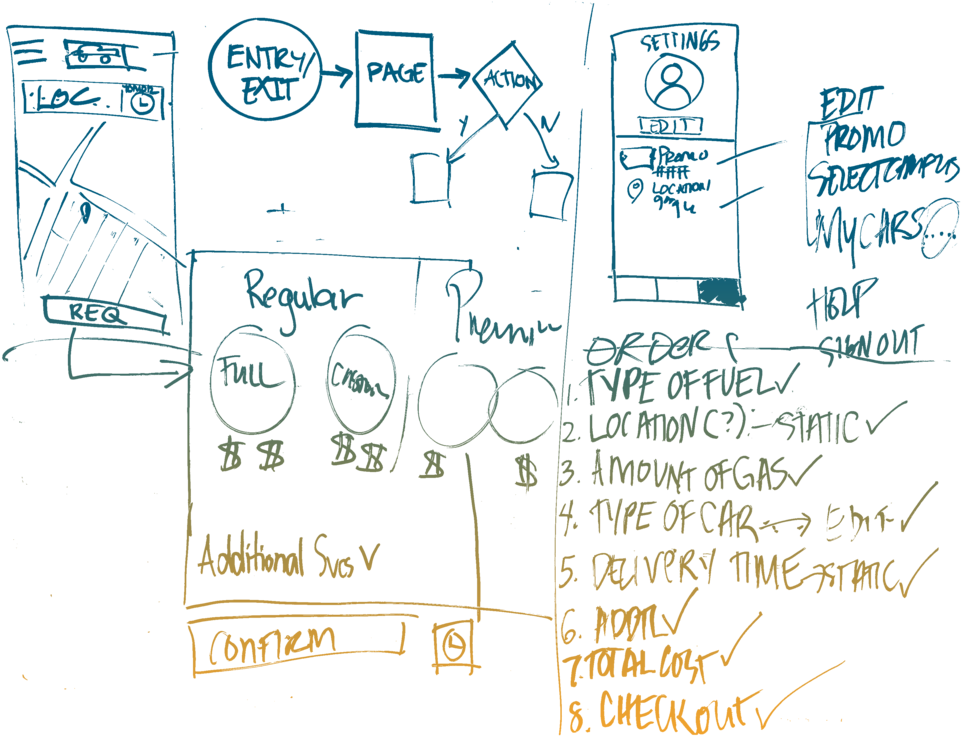 LOC.
REQ
ENTRY/
EXIT
PAGE
ACTION
Y
N
Regular
FULL
$ $
$ $
$
$
Additional Svcs
CONFIRM
SETTINGS
EDIT
PROMO
###
LOCATION/
EDIT
PROMO
SELECT CAMPUS
MY CARS....
HELP
SIGN OUT
ORDER
1. TYPE OF FUEL ✓
2. LOCATION (?) – STATIC ✓
3. AMOUNT OF GAS ✓
4. TYPE OF CAR → EDIT ✓
5. DELIVERY TIME → STATIC ✓
6. ADDTL ✓
7. TOTAL COST ✓
8. CHECKOUT ✓